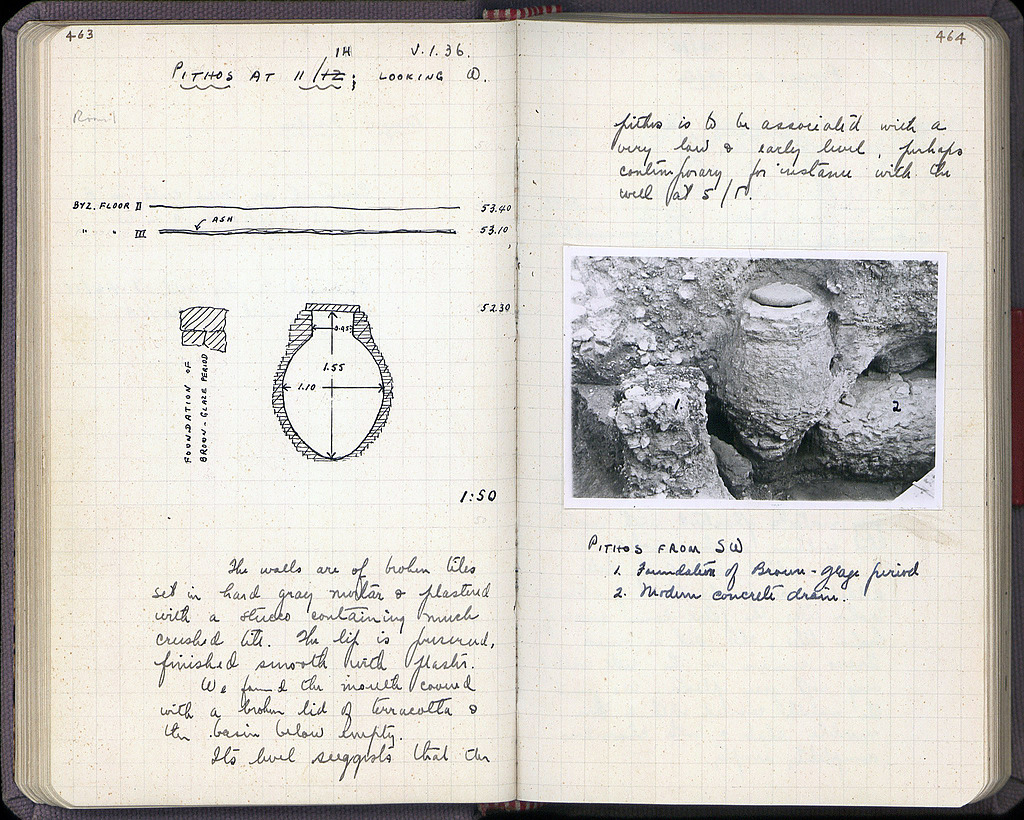 463
V.1.36.
1H
PITHOS AT 11/12; LOOKING W.
BYZ. FLOOR II
53.40
ASH
" " III
53.10
52.30
0.45
1.55
1.10
FOUNDATION OF
BROWN-GLAZE PERIOD
1:50
The walls are of broken tiles
set in hard gray mortar & plastered
with a stucco containing much
crushed tile. The lip is preserved,
finished smooth with plaster.
We found the mouth covered
with a broken lid of terracotta &
the basin below empty.
Its level suggests that the
464
pithos is to be associated with a
very low & early level, perhaps
contemporary, for instance with the
well at 5/Γ.
1
2
PITHOS FROM SW
1. Foundation of Brown-glaze period
2. Modern concrete drain.